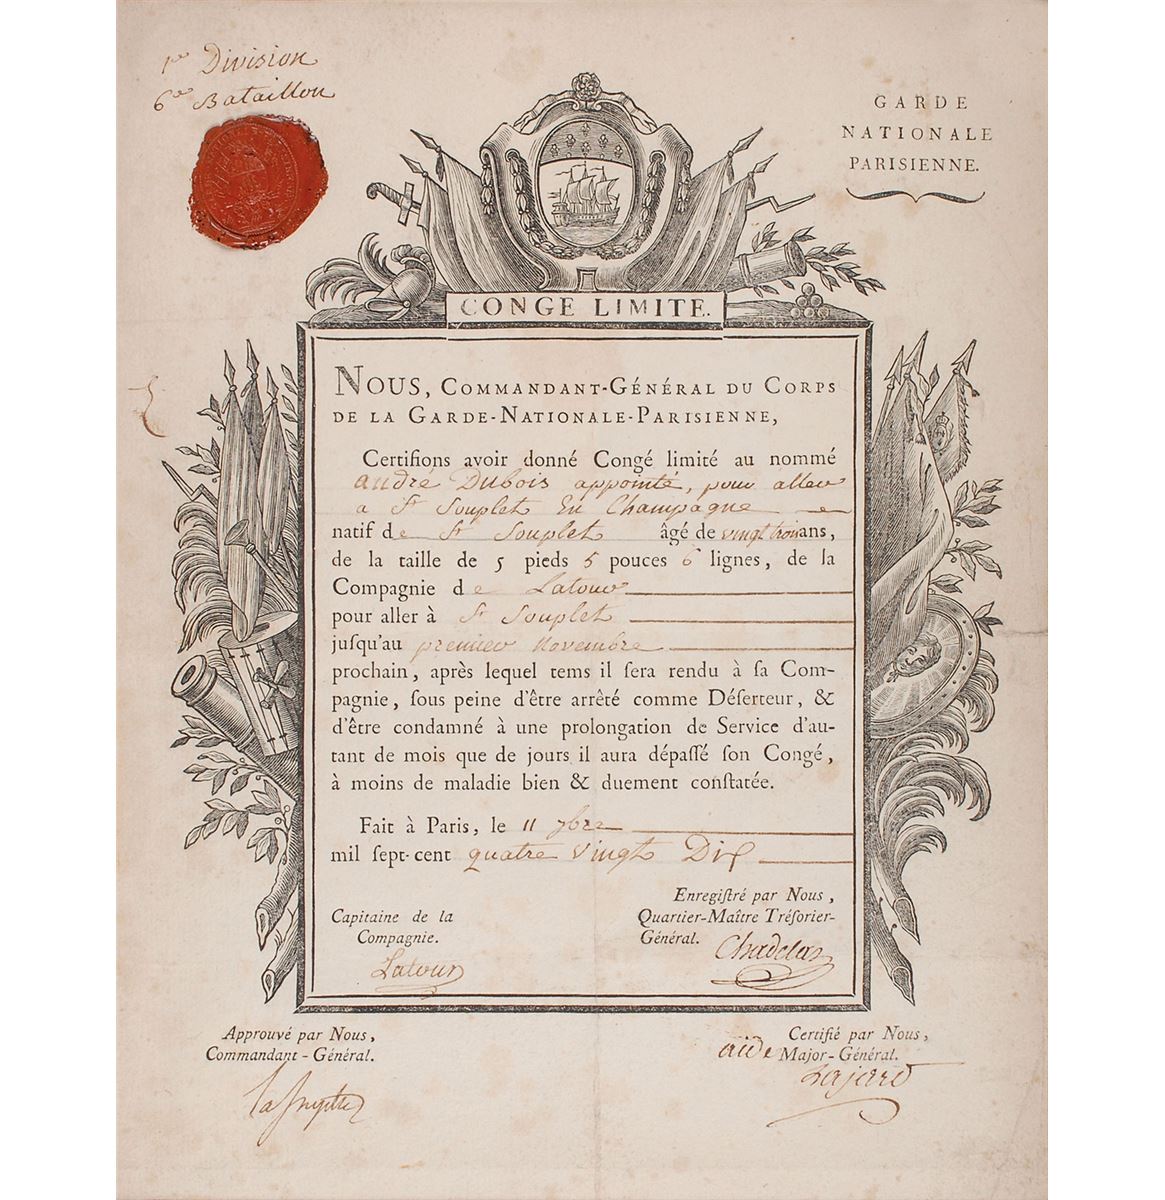 1re Division
6e Bataillon
GARDE
NATIONALE
PARISIENNE.
CONGE LIMITE.
NOUS, COMMANDANT-GÉNÉRAL DU CORPS
DE LA GARDE-NATIONALE-PARISIENNE,
Certifions avoir donné Congé limité au nommé
andré Dubois appointé, pour aller
a St Souplet En Champagne
natif de St Souplet âgé de vingt trois ans,
de la taille de 5 pieds 5 pouces 6 lignes, de la
Compagnie de Latour
pour aller à St Souplet
juſqu'au premier Novembre
prochain, après lequel tems il ſera rendu à ſa Com-
pagnie, ſous peine d'être arrêté comme Déſerteur, &
d'être condamné à une prolongation de Service d'au-
tant de mois que de jours il aura dépaſſé ſon Congé,
à moins de maladie bien & duement conſtatée.
Fait à Paris, le 11 7bre
mil ſept-cent quatre vingt Dix
Enregiſtré par Nous,
Capitaine de la Quartier-Maître Tréſorier-
Compagnie. Général.
Latour
Approuvé par Nous, Certifié par Nous,
Commandant-Général. aide Major-Général.
lafayette Lajard